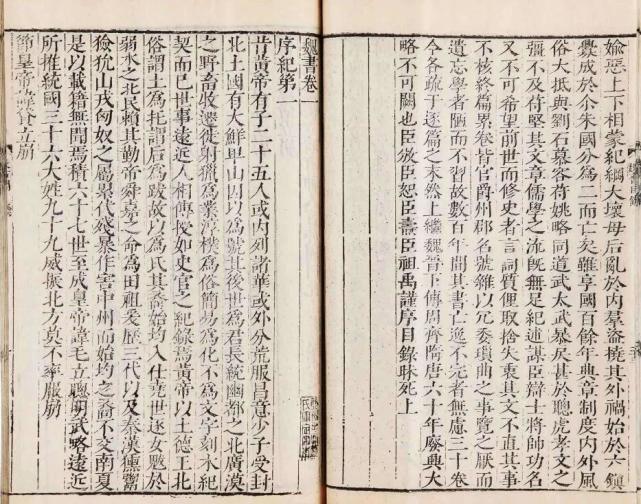 媮惡上下相蒙紀綱大壞母后亂於內羣盜撓其外禍始於六鎮
釁成於尒朱國分為二而亡矣雖享國百餘年典章制度內外風
俗大抵與劉石慕容苻姚略同道武太武暴戾甚於聰虎孝文之
彊不及苻堅其文章儒學之流旣無足紀述謀臣辯士將帥功名
又不可希望前世而修史者言詞質俚取捨失衷其文不直其事
不核終篇累卷皆官爵州郡名號雜以冗委瑣曲之事覽之厭而
遺忘學者陋而不習故數百年間其書亡逸不完者無慮三十卷
今各疏于逐篇之末然上繼魏晉下傳周齊隋唐六十年廢興大
略不可闕也臣攽臣恕臣燾臣祖禹謹序目錄昧死上
魏書卷
序紀第一
昔黃帝有子二十五人或內列諸華或外分荒服昌意少子受封
北土國有大鮮卑山因以為號其後世為君長統幽都之北廣漠
之野畜牧遷徙射獵為業淳樸為俗簡易為化不為文字刻木紀
契而已世事遠近人相傳授如史官之紀錄焉黃帝以土德王北
俗謂土為托謂后為跋故以為氏其裔始均入仕堯世逐女魃於
弱水之北民賴其勤帝舜嘉之命為田祖爰歷三代以及秦漢獯鬻
獫狁山戎匈奴之屬累代殘暴作害中州而始均之裔不交南夏
是以載籍無聞焉積六十七世至成皇帝諱毛立聰明武略遠近
所推統國三十六大姓九十九威振北方莫不率服崩
節皇帝諱貸立崩